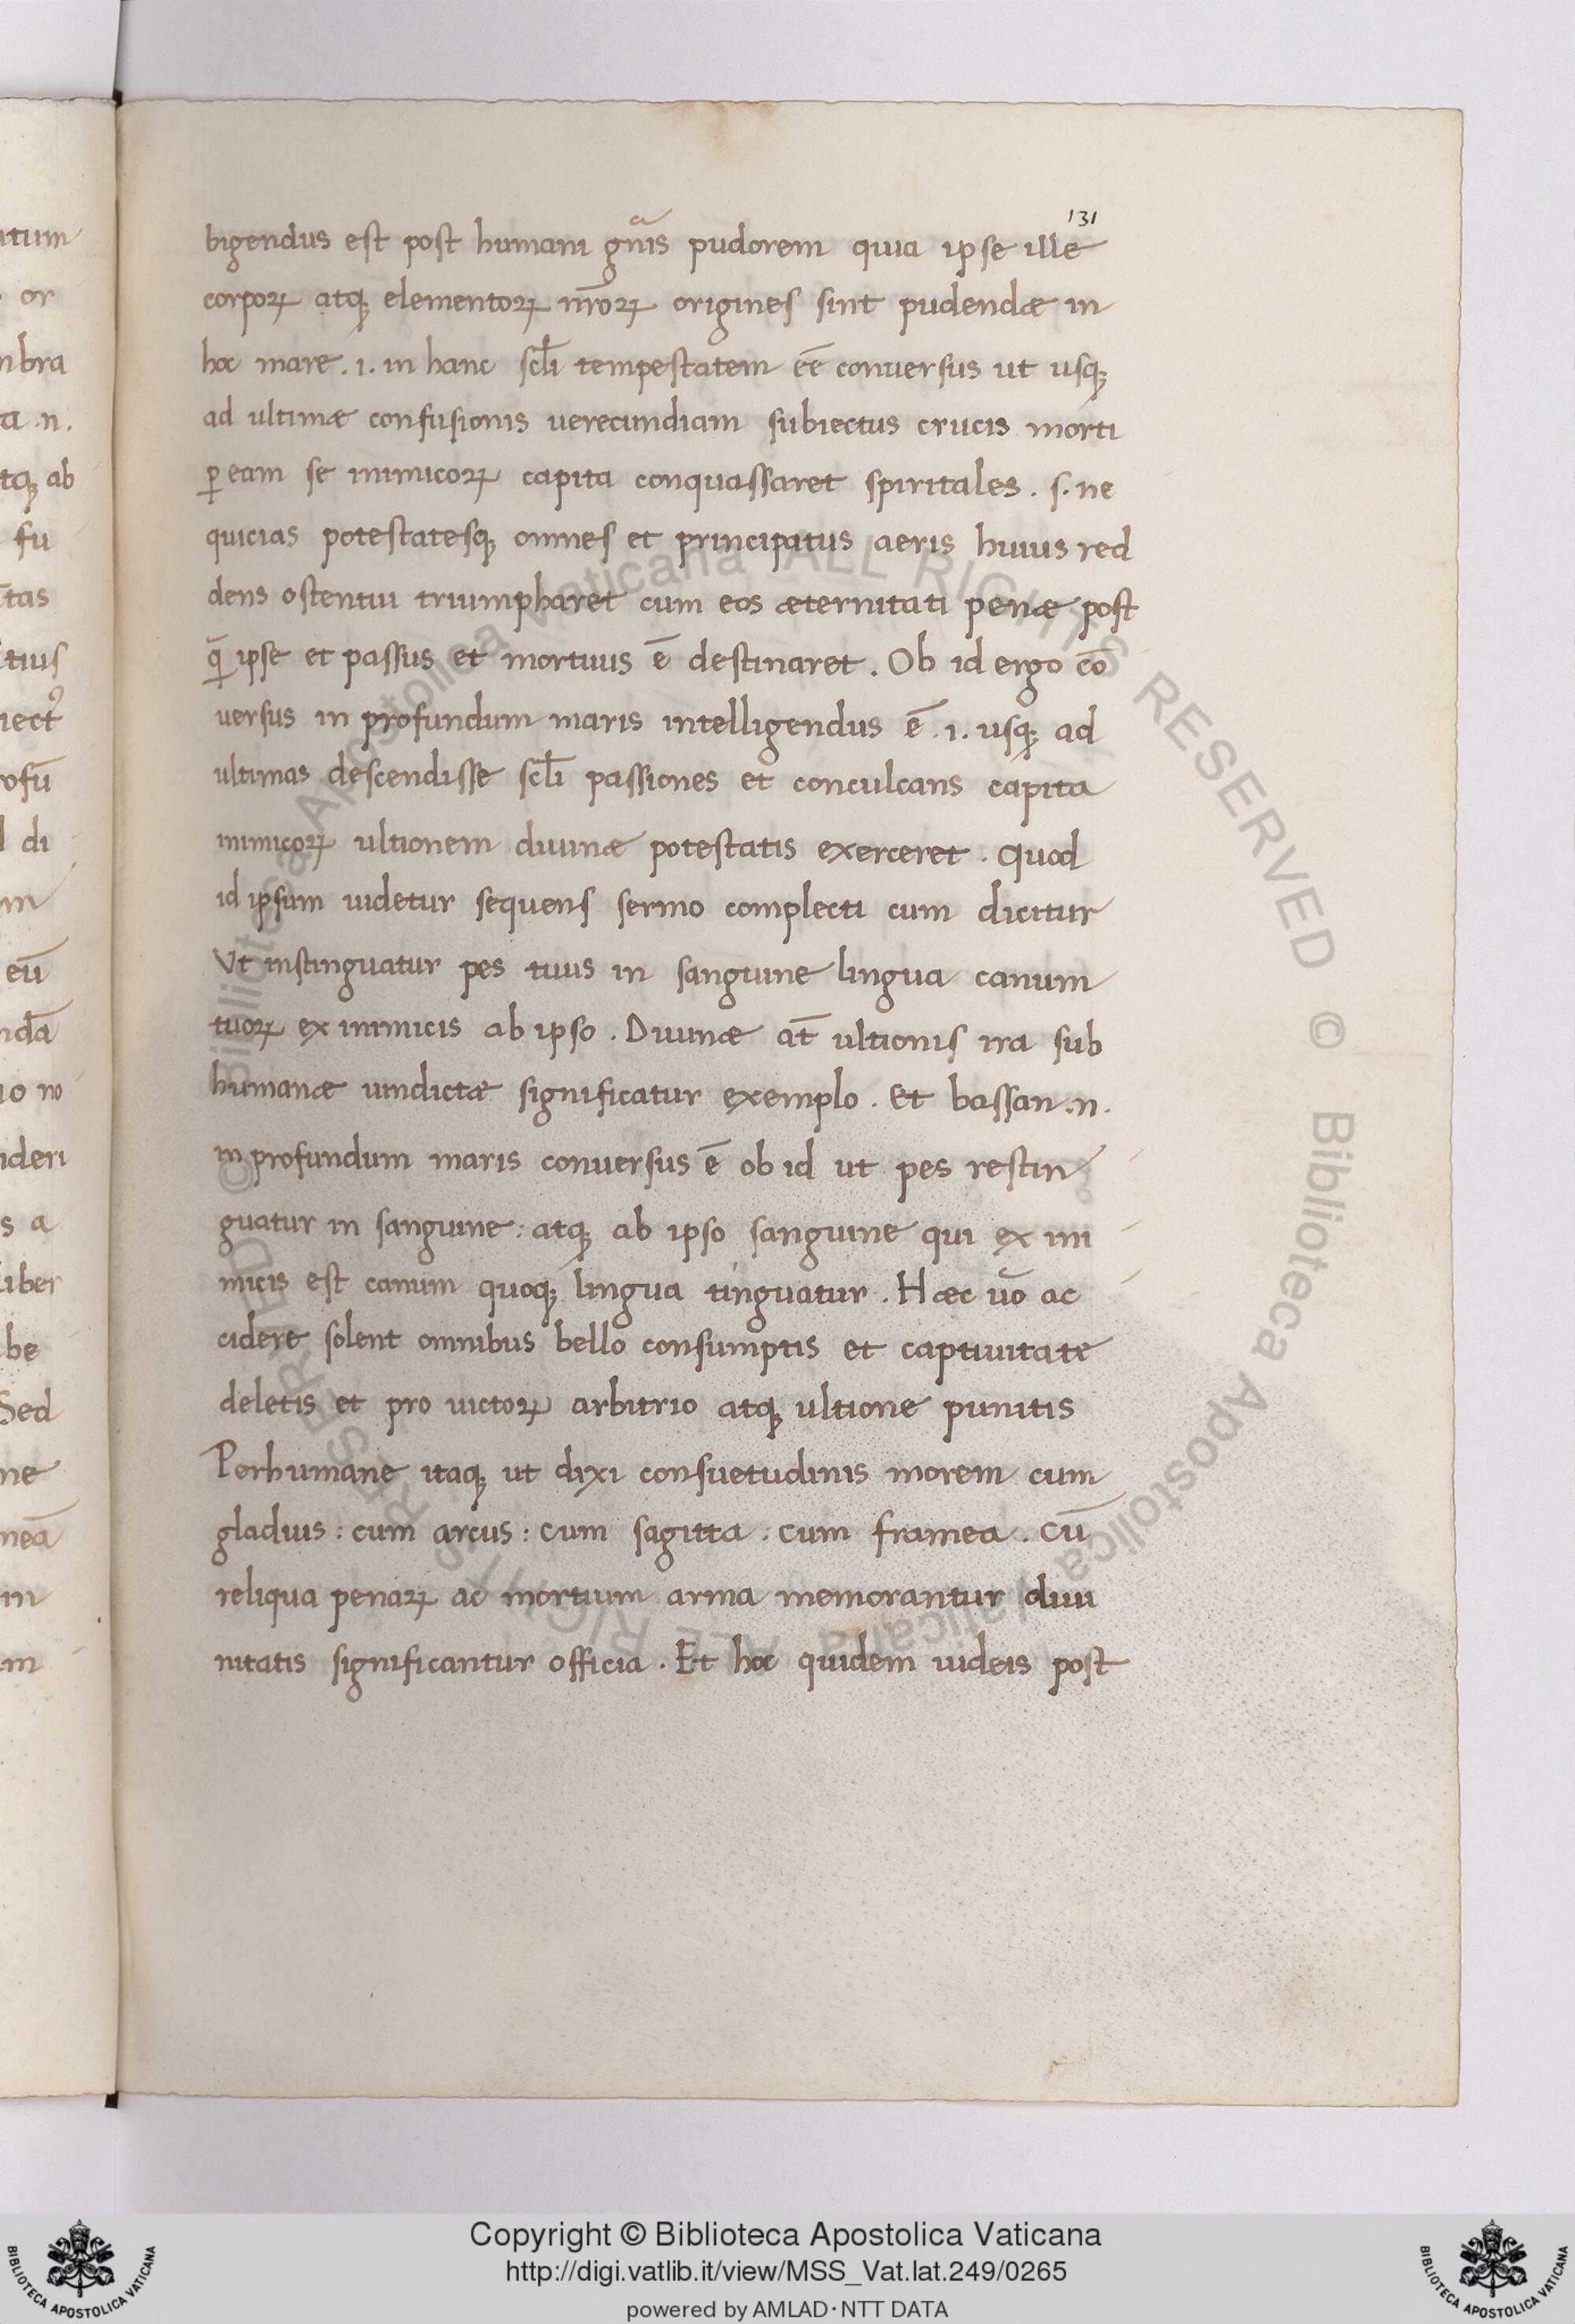 131
bigendus est post humani gn̄is pudorem quia ipse ille
corporꝝ atqꝫ elementorꝝ nr̄orꝝ origines sint pudendæ in
hoc mare .i. in hanc scl̄i tempestatem ēē conuersus ut usqꝫ
ad ultimæ confusionis uerecundiam subiectus crucis morti
ꝑ eam se inimicorꝝ capita conquassaret spiritales . s. ne
quicias potestatesqꝫ omnes et principatus aeris huius red
dens ostentui triumpharet cum eos æternitati penæ post
ꝙ̄ ipse et passus et mortuus ē destinaret . Ob id ergo cō
uersus in profundum maris intelligendus ē .i. usqꝫ ad
ultimas descendisse scl̄i passiones et conculcans capita
inimicorꝝ ultionem diuinæ potestatis exerceret . Quod
id ipsum uidetur sequens sermo complecti cum dicitur
Vt instinguatur pes tuus in sanguine lingua canum
tuorꝝ ex inimicis ab ipso . Diuinæ at̄ ultionis ira sub
humanæ uindictæ significatur exemplo . Et bassan .n.
in profundum maris conuersus ē ob id ut pes restin
guatur in sanguine : atqꝫ ab ipso sanguine qui ex ini
micis est canum quoqꝫ lingua tinguatur . Hæc uō ac
cidere solent omnibus bello consumptis et captiuitate
deletis et pro uictorꝝ arbitrio atqꝫ ultione punitis
Perhumane itaqꝫ ut dixi consuetudinis morem cum
gladiis : cum arcus : cum sagitta : cum framea . Cū
reliqua penarꝝ ac mortium arma memorantur diui
nitatis significantur officia . Et hoc quidem uideis post
Copyright © Biblioteca Apostolica Vaticana
http://digi.vatlib.it/view/MSS_Vat.lat.249/0265
powered by AMLAD·NTT DATA